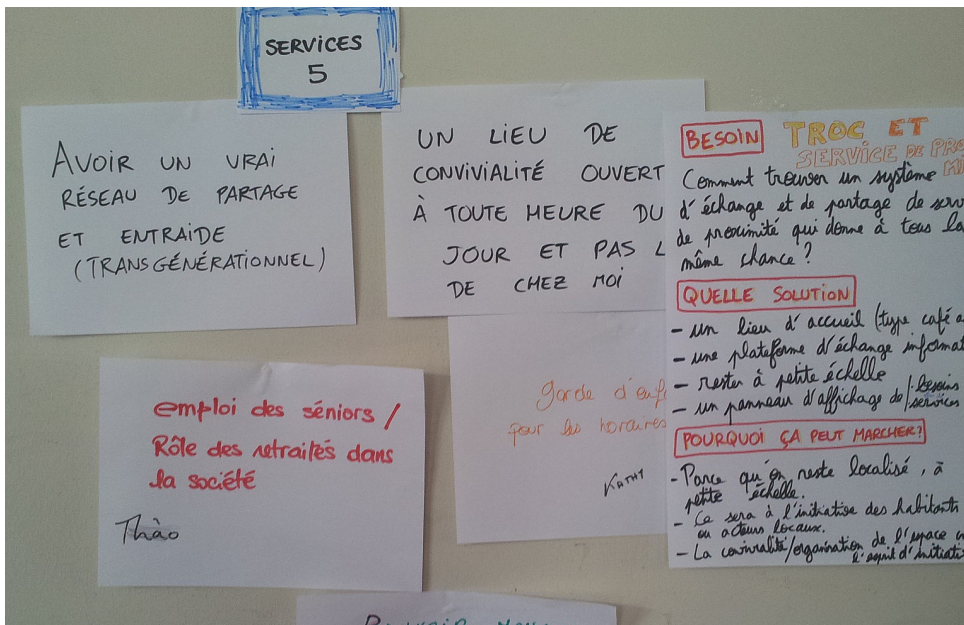 SERVICES
5
AVOIR UN VRAI
RÉSEAU DE PARTAGE
ET ENTRAIDE
(TRANSGÉNÉRATIONNEL)
UN LIEU DE
CONVIVIALITÉ OUVERT
À TOUTE HEURE DU
JOUR ET PAS L
DE CHEZ MOI
emploi des séniors /
Rôle des retraités dans
la société
Thào
Garde d'enf
pour les horaires
KATHY
BESOIN
TROC ET
SERVICE DE PRO
Comment trouver un système
d'échange et de partage de serv
de proximité qui donne à tous la
même chance ?
QUELLE SOLUTION
- un lieu d'accueil (type café a
- une plateforme d'échange informat
- rester à petite échelle
- un panneau d'affichage de / besoins
services
POURQUOI ÇA PEUT MARCHER?
- Parce qu'on reste localisé, à
petite échelle.
- Ce sera à l'initiative des habitants
ou acteurs locaux.
- La convivialité/organisation de l'espace
l'esprit d'initiati